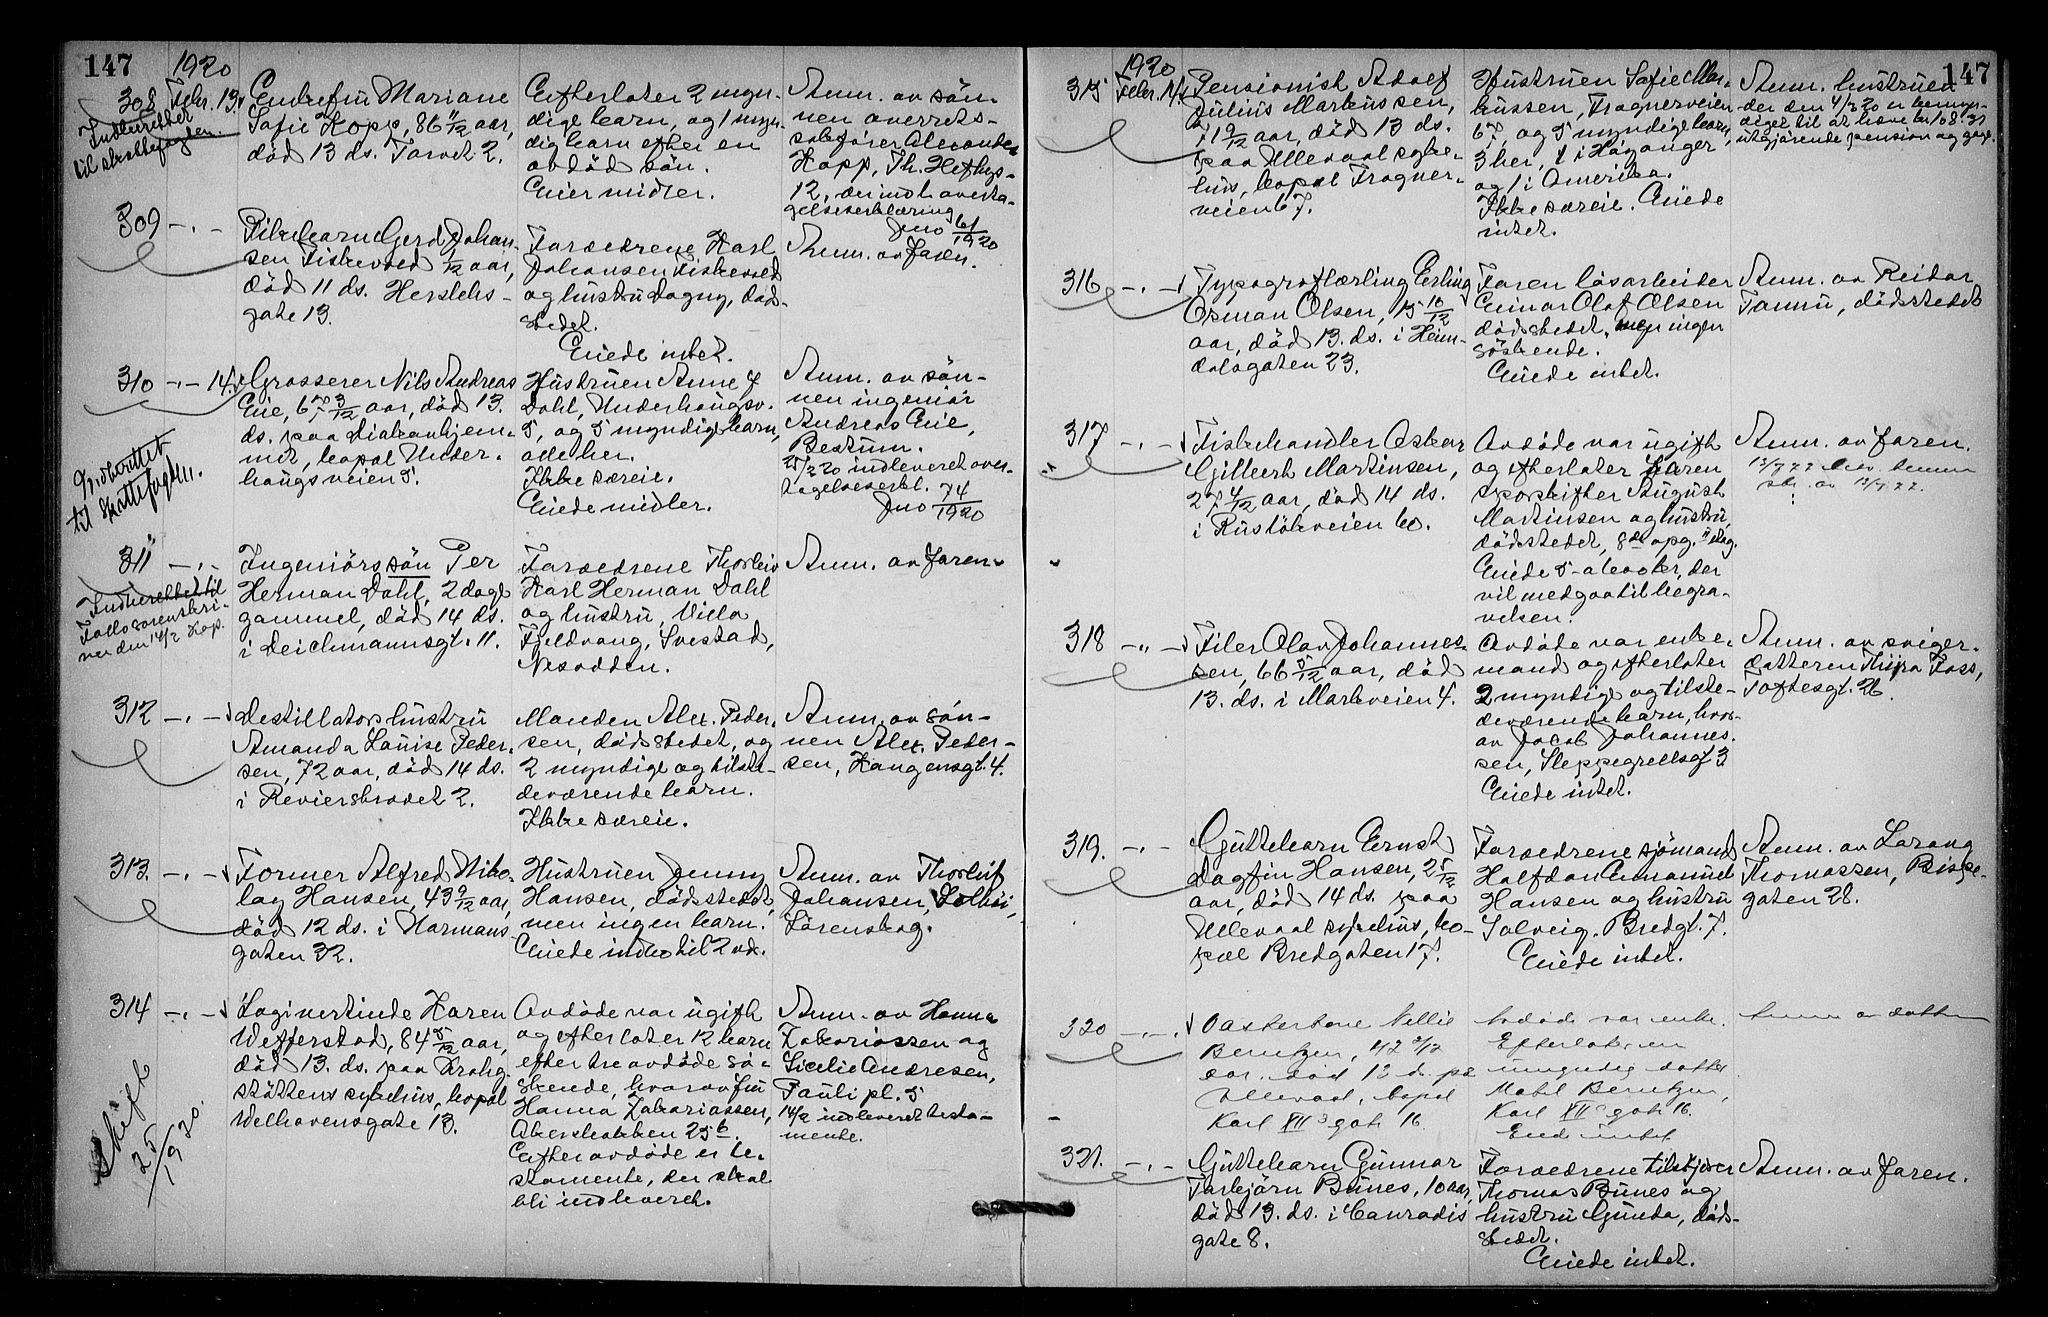 147
1920
308 Febr. 13.
Indberettet
til skattefogden.
Enkefru Mariane
Sofie Kopp, 86 11/12 aar,
død 13 ds. Torvet 2.
Efterlater 2 myn-
dige barn, og 1 myn-
dig barn efter en
avdød søn.
Eier midler.
Anm. av søn-
nen overrets-
sakfører Alexander
Kopp, Th. Heftyes-
12, der indl. overta-
gelseserklæring
Jno 61/1920
309 -"-
Pikebarn Gerd Johan-
sen Fiskevold 1/12 aar,
død 11 ds. Herslebs-
gate 13.
Forældrene Karl
Johansen Fiskevold
og hustru Dagny, død-
stedet.
Eiede intet.
Anm. av faren.
310 -"- 14.
Indberettet
til skattefogden.
Grosserer Nils Andreas
Eie, 67 3/12 aar, død 13.
ds. paa Diakonhjem-
met, bopæl Under-
haugsveien 5.
Hustruen Anne f.
Dahl, Underhaugsv.
5, og 5 myndige barn,
alle her.
Ikke særeie.
Eiede midler.
Anm. av søn-
nen ingeniør
Andreas Eie,
Bestum.
25/2 20 indleveret over-
tagelseserkl.
Jno 74/1920
311 -"-
Indberettet til
Follo sorenskri-
ver den 14/2 Kop.
Ingeniørs søn Per
Herman Dahl, 2 dage
gammel, død 14 ds.
i Deichmannsgt. 11.
Forældrene Thorleiv
Karl Herman Dahl
og hustru, Villa
Fjeldvang, Svestad,
Nesodden.
Anm. av faren.
312 -"-
Destillatørs hustru
Amanda Louise Peder-
sen, 72 aar, død 14 ds.
i Revierstrædet 2.
Manden Alex. Peder-
sen, dødsstedet, og
2 myndige og tilste-
deværende barn.
Ikke særeie.
Anm. av søn-
nen Alex. Peder-
sen, Haugensgt. 4.
313. -"-
Former Alfred Niko-
lay Hansen, 43 9/12 aar,
død 12 ds. i Normans-
gaten 32.
Hustruen Jenny
Hansen, dødsstedet,
men ingen barn.
Eiede indbo til 2 vær.
Anm. av Thorleif
Johansen, Solhei,
Lørenskog.
314 -"-
Skifte
25/1920.
Logivertinde Karen
Wefferstad, 84 5/12 aar,
død 13. ds. paa Krohg-
støttens sykehus, bopæl
Welhavensgate 13.
Avdøde var ugift
og efterlater 12 barn
efter tre avdøde sø-
skende, hvorav fru
Hanna Zakariassen,
Akersbakken 25 b.
Efter avdøde er te-
stamente, der skal
bli indleveret.
Anm. av Hanna
Zakariassen og
Sicelie Andresen,
Pauli pl. 5
14/2 indleveret testa-
mente.
147
1920
315 Febr. 14
Pensionist Adolf
Julius Markussen,
71 9/12 aar, død 13 ds.
paa Ullevaal syke-
hus, bopæl Frogner-
veien 67.
Hustruen Sofie Mar-
kussen, Frognerveien
67, og 5 myndige barn,
3 her, 1 i Høyanger,
og 1 i Amerika.
Ikke særeie. Eiede
intet.
Anm. hustruen
der den 4/3 20 er bemyn-
diget til at hæve kr. 108.37
utgjørende pension og gage.
316 -"-
Typograflærling Erling
Osman Olsen, 15 10/12
aar, død 13. ds. i Heim-
dalsgaten 23.
Faren løsarbeider
Einar Olaf Olsen
dødsstedet, men ingen
søskende.
Eiede intet.
Anm. av Reidar
Tomru, dødsstedet
317 -"-
Fiskehandler Oskar
Gilbert Martinsen,
27 4/12 aar, død 14 ds.
i Rustøkveien 60.
Avdøde var ugift
og efterlater faren
sporskifter August
Martinsen og hustru,
dødsstedet, 8de opg. 11 etag.
Eiede 5 aktier, der
vil medgaa til begra-
velsen.
Anm. av faren.
318 -"-
Filer Olav Johannes-
sen, 66 5/12 aar, død
13. ds. i Markveien 4.
Avdøde var enke-
mand og efterlater
2 myndige og tilste-
deværende barn, hvor-
av Jacob Johannes-
sen, Steppegrellsgt 3
Eiede intet.
Anm. av sviger-
datteren Thyra Foss,
Toftesgt. 26.
319. -"-
Guttebarn Ernst
Dagfin Hansen, 2 5/12
aar, død 14 ds. paa
Ullevaal sykehus, bo-
pæl Bredgaten 17.
Forældrene sjømand
Halfdan Emanuel
Hansen og hustru
Solveig. Bredgt. 7.
Eiede intet.
Anm. av Lorang
Thomassen, Bispe-
gaten 28.
320 -"-
Vasterkone Nellie
Berntzen, 42 9/12
aar, død 13 ds. pa
Ullevaal, bopæl
Karl XII's gate 16
Avdøde var enke.
Efterlater en
umyndig datter
Mabel Berntzen,
Karl XII's gate 16.
Eied intet
Anm. av datter
321. -"-
Guttebarn Gunnar
Torbjørn Bunes, 10 aar,
død 13. ds. i Conradis
gate 8.
Forældrene tilskjærer
Thomas Bunes og
hustru Gunda, død-
stedet.
Eiede intet.
Anm. av faren.